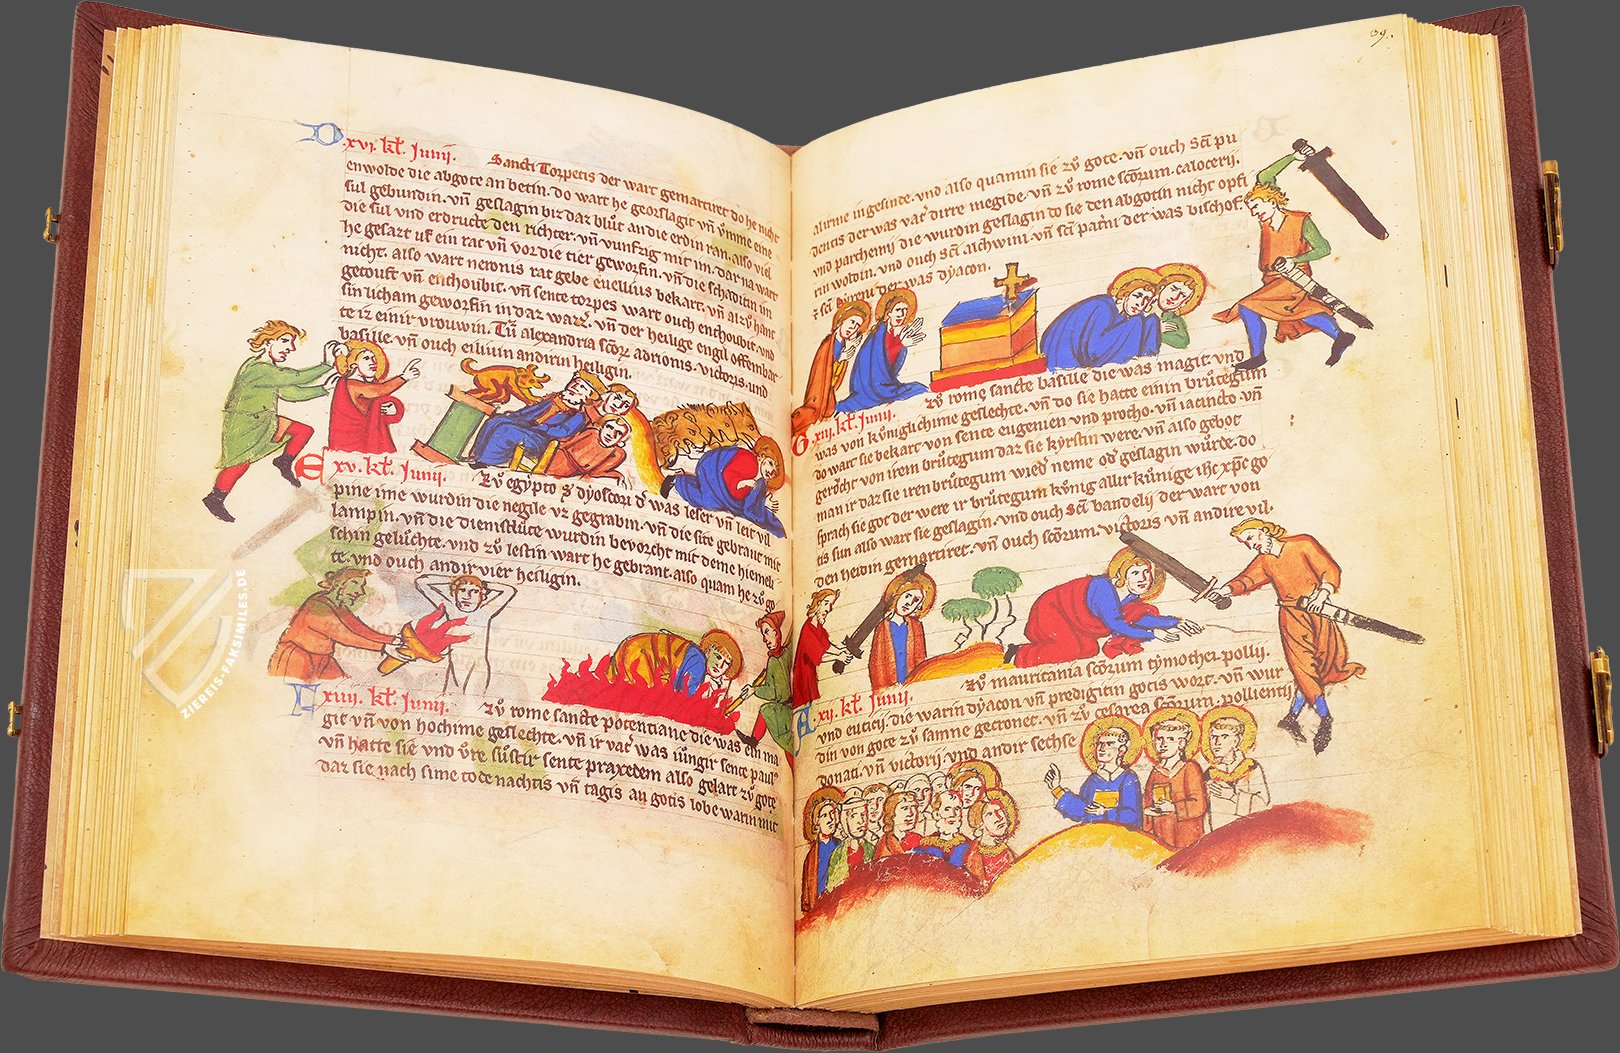 D .xvj. kł. Junij. Sancti Torpetis der wart gemartiret do he nicht
enwolde die abgote an betin. do wart he georslagit vñ ymme eine
sul gebundin. vñ geslagin biz daz blůt an die erdin ran. also viel
die sul vnd erdructe den richter. vñ vunfzig mit im. dar na wart
he gesazt uf ein rat vñ vor die tier geworfin. vñ die schaditin im
nicht. also wart neronis rat gebe evellius bekart. vñ alzů hant
getouft vñ enthoubit. vñ sente torpes wart ouch enthoubit. vnd
sin licham geworfin in daz wazz̉. vñ der heilige engil offenbar
te iz einir vrouwin. Tzů alexandria scōrz adrionis. victoris. vnd
basille. vñ ouch eiliuin andirin heiligin.
E xv. kł. Junij. Zů egypto s̄ dyoscori d̉ was leser vñ leit vil
pine ime wurdin die negile vz gegrabin. vñ die site gebrant mit
lampin. vñ die diemstůte wurdin bevorcht mit deme hiemeli
schin gelůchte. vnd zů lestin wart he gebrant. also quam he zů go
te. vnd ouch andir vier heiligin.
F xiiij. kł. Junij. Zů rome sancte potentiane die was ein ma
git vñ von hochime geslechte. vñ ir vat̉ was iůngir sente pauls
vñ hatte sie vnd v̉re sůstir sente praxedem also gelart zů gote
daz sie nach sime tode nachtis vñ tagis an gotis lobe warin mit
39.
alirme ingesinde. vnd also quamin sie zů gote. vñ ouch sc̄i pu
dentis der was vat̉ dirre megide. vñ zů rome scōrum. calocerij.
vnd parthemij die wurdin geslagin do sie den abgotin nicht opfi
rin woldin. vnd ouch sc̄i alchwini. vñ sc̄i pat̉ni der was bischof.
der was dyacon.
G .xiij. kł. Junij. Zů rome sancte basille die was magit vnd
was von kůniglichime geslechte. vñ do sie hatte einin brůtegum
do wart sie bekart von sente eugenien vnd protho. vñ iacincto vñ
gerůcht von irem brůtegum daz sie kyrstin were. vñ also gebot
man ir daz sie iren brůtegum wied̉ neme od̉ geslagin wůrde. do
sprach sie got der were ir brůtegum kůnig allir kůnige ihc̄ xp̄c go
tis sun also wart sie geslagin. vnd ouch sc̄i bandelij der wart von
den heidin gemartiret. vñ ouch scōrum. victoris vñ andire vil.
A .xij. kł. Junij. Zů mauritania scōrum tymothei. pollij.
vnd euticij. die warin dyacon vñ predigitin gotis wort. vñ wur
din von gote zů samne gecronet. vñ zů cesarea scōrum. pollientij
donati. vñ victorij. vnd andir sechse
ZIEREIS-FAKSIMILES.DE